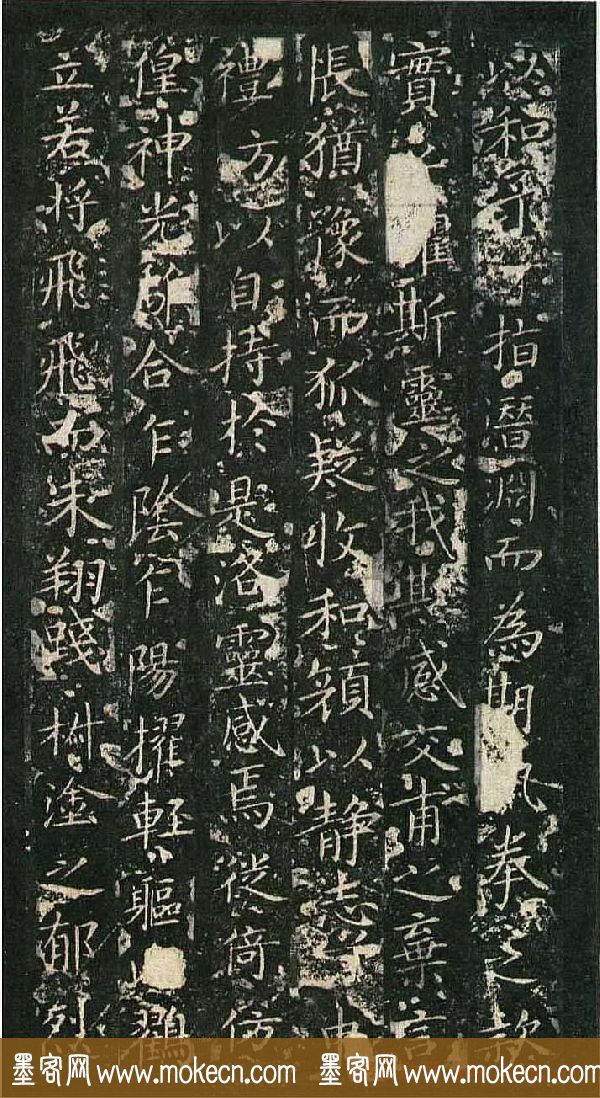 以和予兮指潛淵而為期執拳之款
實兮懼斯靈之我欺感交甫之棄言
悵猶豫而狐疑收和顏以静志兮申
禮方以自持於是洛靈感焉徙倚仿
偟神光離合乍陰乍陽擢輕軀以鶴
立若将飛飛而未翔踐椒塗之郁烈
墨客网 www.mokecn.com 墨客网 www.mokecn.com